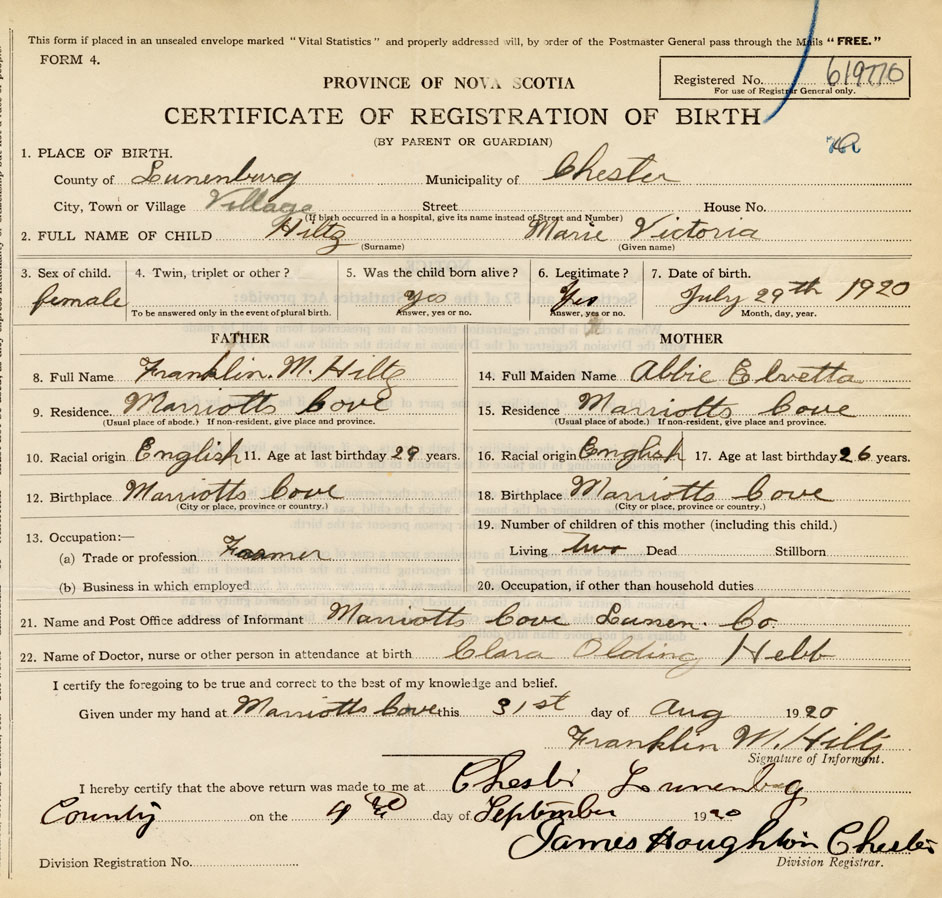 This form if placed in an unsealed envelope marked "Vital Statistics" and properly addressed will, by order of the Postmaster General pass through the Mails "FREE."
FORM 4.
Registered No. 619770
For use of Registrar General only.
PROVINCE OF NOVA SCOTIA
CERTIFICATE OF REGISTRATION OF BIRTH
(BY PARENT OR GUARDIAN)
1. PLACE OF BIRTH.
County of Lunenburg Municipality of Chester
City, Town or Village Village Street House No.
(If birth occurred in a hospital, give its name instead of Street and Number)
2. FULL NAME OF CHILD Hiltz Marie Victoria
(Surname) (Given name)
3. Sex of child. 4. Twin, triplet or other? 5. Was the child born alive? 6. Legitimate? 7. Date of birth.
female Yes Yes July 29th 1920
To be answered only in the event of plural birth. Answer, yes or no. Answer, yes or no. Month, day, year.
FATHER MOTHER
8. Full Name Franklin. M. Hiltz 14. Full Maiden Name Abbie Elvetta
9. Residence. Marriotts Cove 15. Residence Marriotts Cove
(Usual place of abode.) If non-resident, give place and province. (Usual place of abode.) If non-resident, give place and province.
10. Racial origin English 11. Age at last birthday 29 years. 16. Racial origin English 17. Age at last birthday 26 years.
12. Birthplace Marriotts Cove 18. Birthplace Marriotts Cove
(City or place, province or country.) (City or place, province or country.)
19. Number of children of this mother (including this child.)
13. Occupation:—
(a) Trade or profession Living two Dead Stillborn
(b) Business in which employed 20. Occupation, if other than household duties
21. Name and Post Office address of Informant Marriotts Cove Lunen. Co.
22. Name of Doctor, nurse or other person in attendance at birth Clara Olding Hebb
I certify the foregoing to be true and correct to the best of my knowledge and belief.
Given under my hand at Marriotts Cove this 31st day of Aug 1920
Franklin M. Hiltz
Signature of Informant.
I hereby certify that the above return was made to me at Chester Lunenburg
County on the 4 day of September 1920
James Houghton Chester
Division Registration No. Division Registrar.